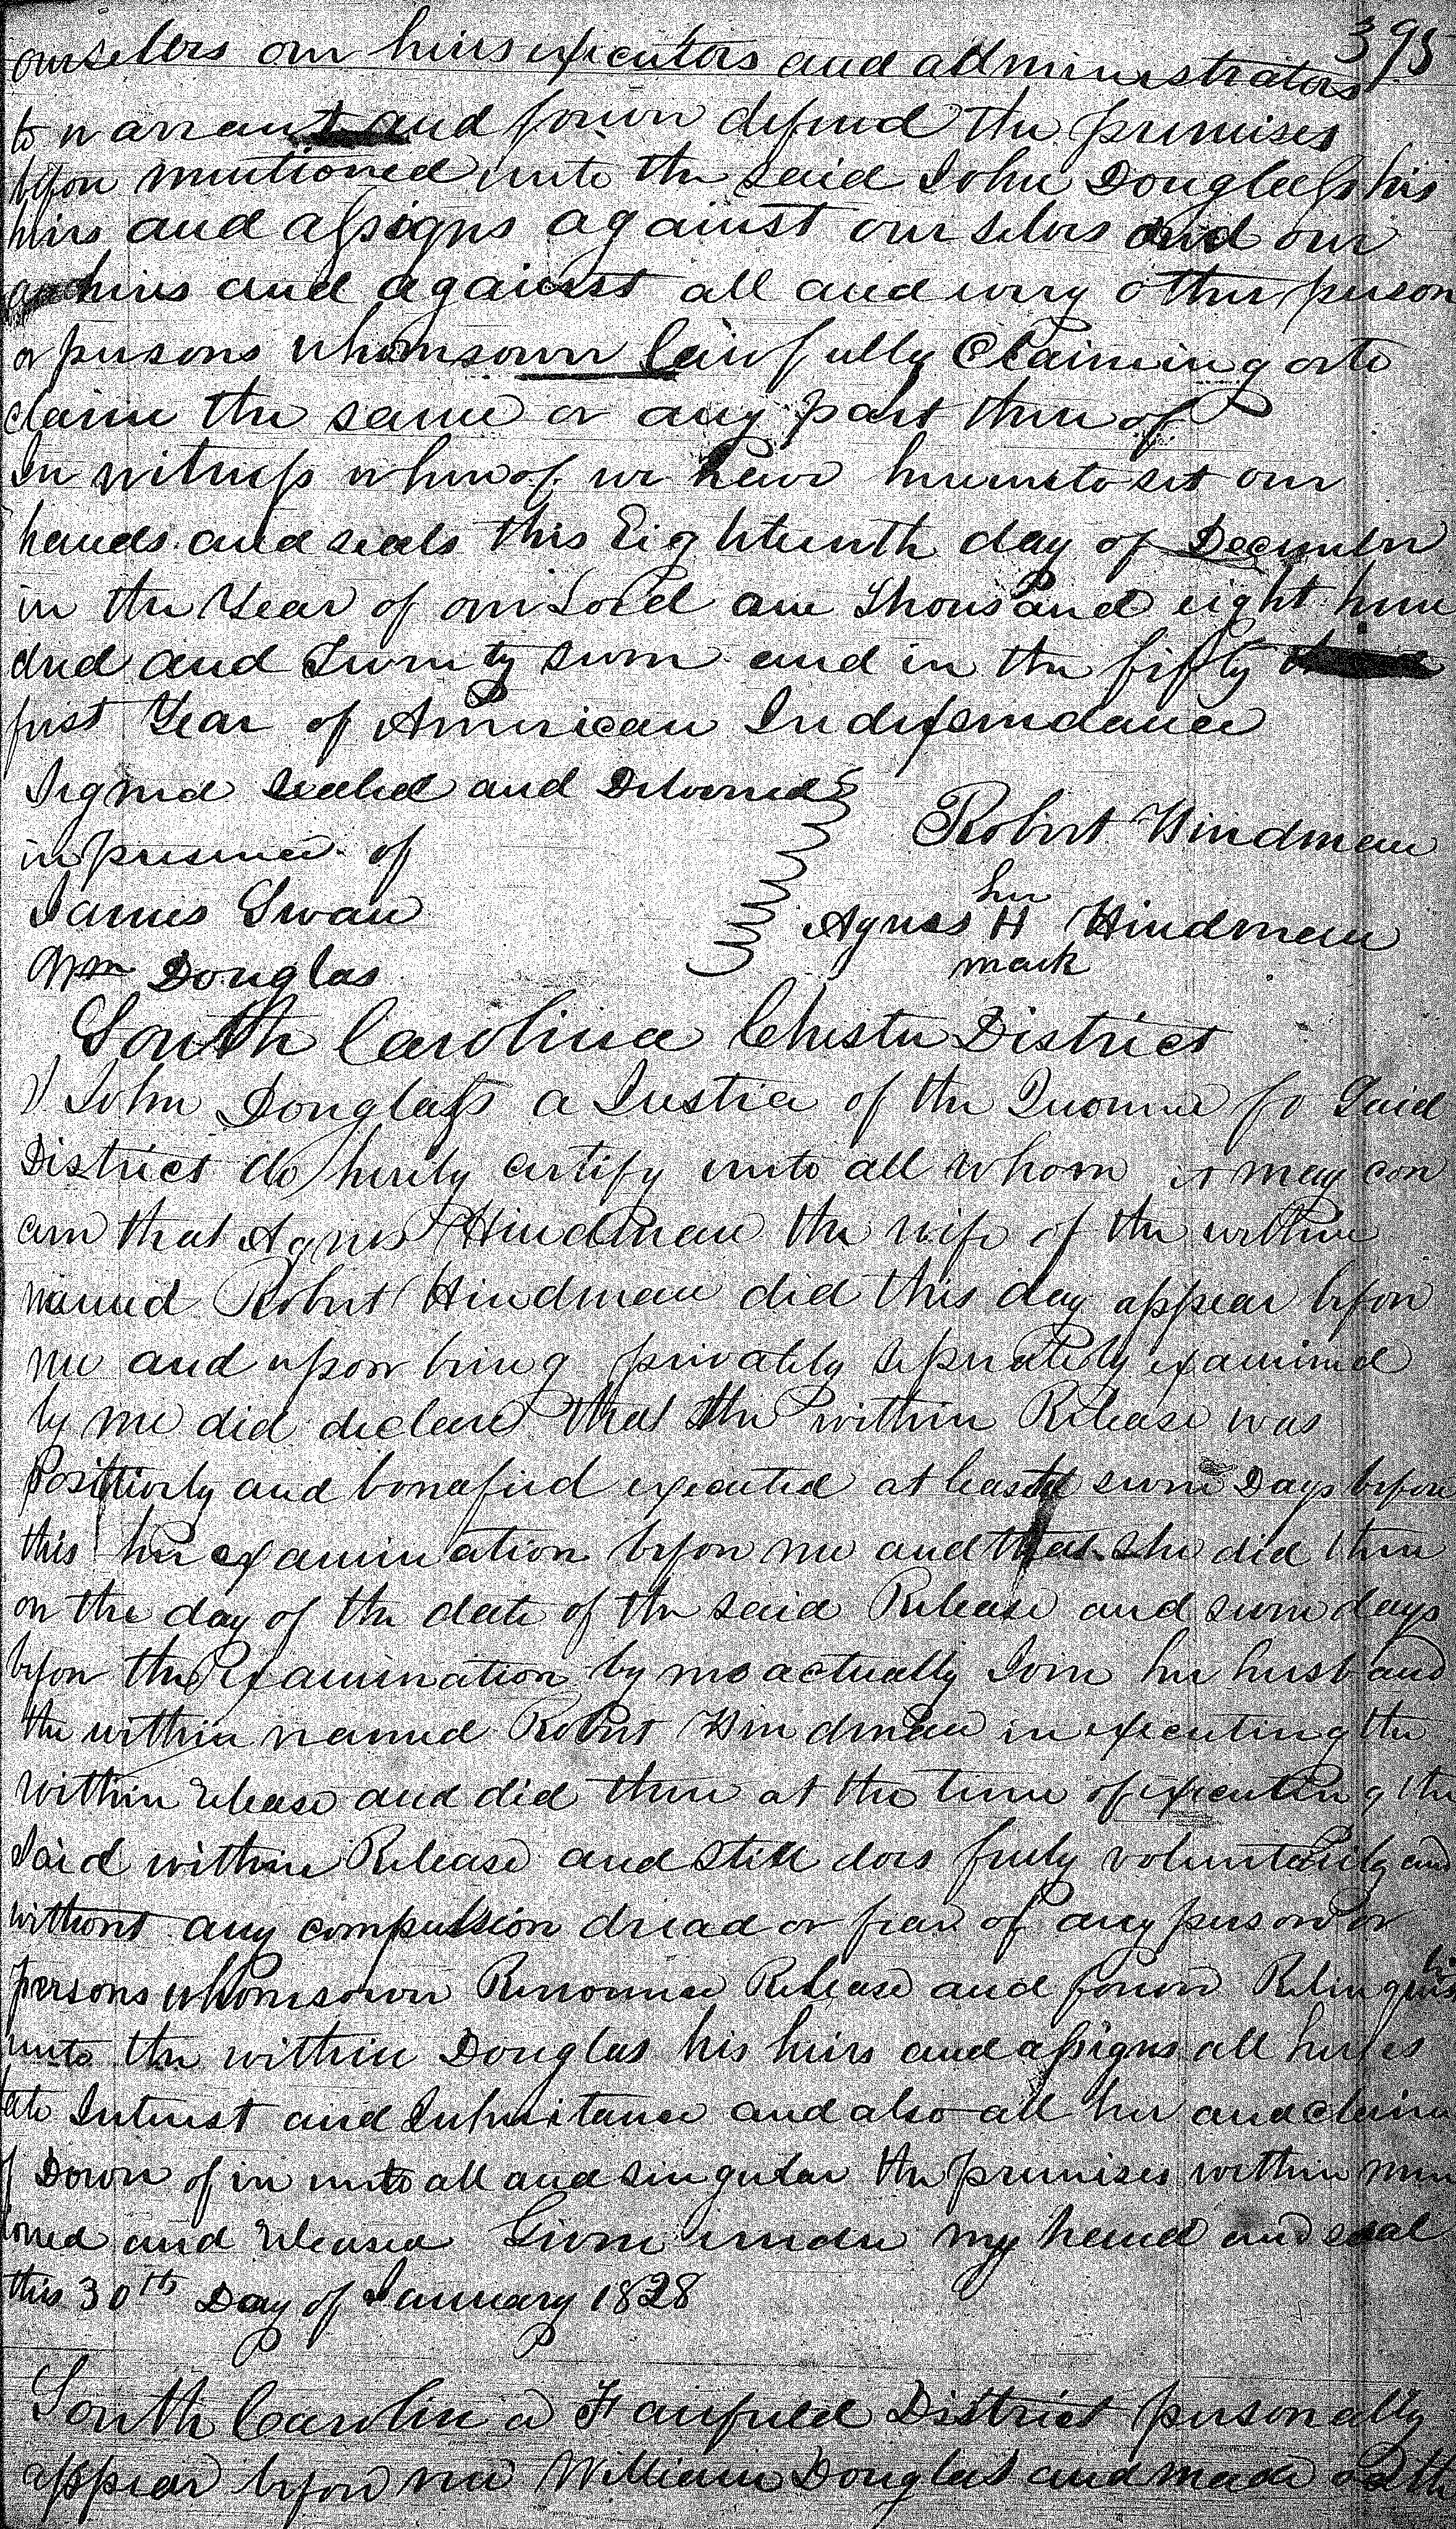 395
ourselves our heirs executors and administrators
to warrant and forever defend the premises
before mentioned unto the said John Douglass his
heirs and assigns against ourselves and our
heirs and against all and every other person
or persons whomsoever lawfully Claiming or to
claim the same or any part there of
In witness whereof we have hereunto set our
hands and seals this Eighteenth day of December
in the Year of our Lord one Thousand eight hun
dred and Twenty seven and in the fifty
first Year of American Independance
Signed Sealed and Delivered
in presence of
Robert Hindman
James Swan
her
Agness H Hindman
mark
Wm Douglas
South Carolina Chester District
I John Douglass a Justice of the Quorum fo Said
District do hereby certify unto all whom it may con
cern that Agnes Hindman the wife of the within
named Robert Hindman did this day appear before
me and upon being privately seperately examined
by me did declare that the within Release was
Positively and bonafied executed at least seven Days before
this her examination before me and that she did then
on the day of the date of the said Release and seven days
before the Examination by me actually Join her husband
the within named Robert Hindman in executing the
within release and did then at the time of executing the
Said within Release and still does freely voluntarily and
without any compulsion dread or fear of any person or
persons whomsoever Renounce Release and forever Relinquish
unto the within Douglas his heirs and assigns all her es
tate Interest and Inheritance and also all her and claim
of Dower of in unto all and singular the premises within men
tioned and released Given under my hand and seal
this 30th Day of January 1828
South Carolina Fairfield District personally
appear before me William Douglas and made oath